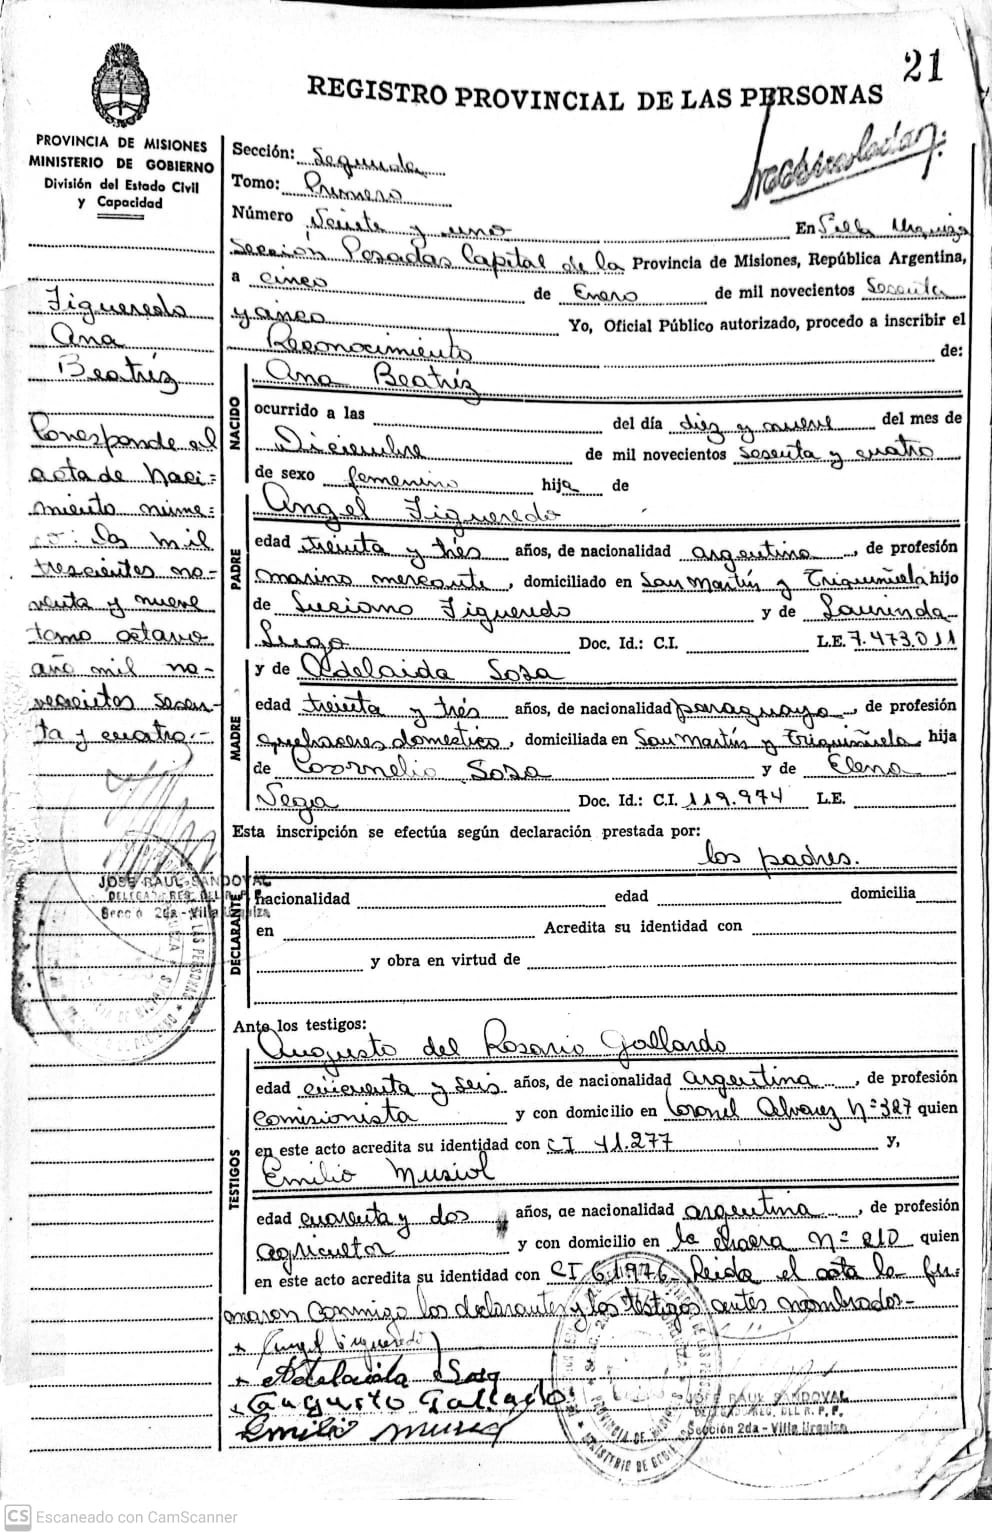 21
REGISTRO PROVINCIAL DE LAS PERSONAS
PROVINCIA DE MISIONES
MINISTERIO DE GOBIERNO
División del Estado Civil
y Capacidad
Figueredo
Ana
Beatríz
Corresponde al
acta de Naci-
miento núme-
ro: Dos mil
trescientos no-
venta y nueve
tomo octavo
año mil no-
vecientos sesen-
ta y cuatro.-
JOSE RAUL SANDOVAL
DELEGADO REG. DEL R. P. P.
Sección 2da - Villa Urquiza
Sección: Segunda
Tomo: Primero
Número Veinte y uno En Villa Urquiza
Sección Posadas Capital de la Provincia de Misiones, República Argentina,
a cinco de Enero de mil novecientos Sesenta
y cinco Yo, Oficial Público autorizado, procedo a inscribir el
Reconocimiento de:
NACIDO
Ana Beatríz
ocurrido a las del día diez y nueve del mes de
Diciembre de mil novecientos sesenta y cuatro
de sexo femenino hija de
PADRE
Angel Figueredo
edad treinta y trés años, de nacionalidad argentina, de profesión
marino mercante, domiciliado en San Martín y Triquiñuela hijo
de Luciano Figueredo y de Laurinda
Lugo Doc. Id.: C.I. L.E. 7.473.011
MADRE
y de Adelaida Sosa
edad treinta y trés años, de nacionalidad paraguaya, de profesión
quehaceres domestico, domiciliada en San Martín y Triquiñuela hija
de Coornelio Sosa y de Elena
Vega Doc. Id.: C.I. 119.974 L.E.
Esta inscripción se efectúa según declaración prestada por:
los padres.
DECLARANTE
nacionalidad edad domicilia
en Acredita su identidad con
y obra en virtud de
Ante los testigos:
TESTIGOS
Augusto del Rosario Gallardo
edad cincuenta y seis años, de nacionalidad argentina, de profesión
comisionista y con domicilio en Coronel Alvarez Nº 327 quien
en este acto acredita su identidad con CI 41.277 y,
Emilio Musiol
edad cuarenta y dos años, de nacionalidad argentina, de profesión
agricultor y con domicilio en la chacra Nº 210 quien
en este acto acredita su identidad con CI 61.976 Leida el acta la fir-
maron conmigo los declarantes y los testigos antes nombrados-
+ Angel Figueredo
+ Adelaida Sosa
+ Augusto Gallardo
Emilio Musiol
JOSE RAUL SANDOVAL
DELEGADO REG. DEL R. P. P.
Sección 2da - Villa Urquiza
CS Escaneado con CamScanner